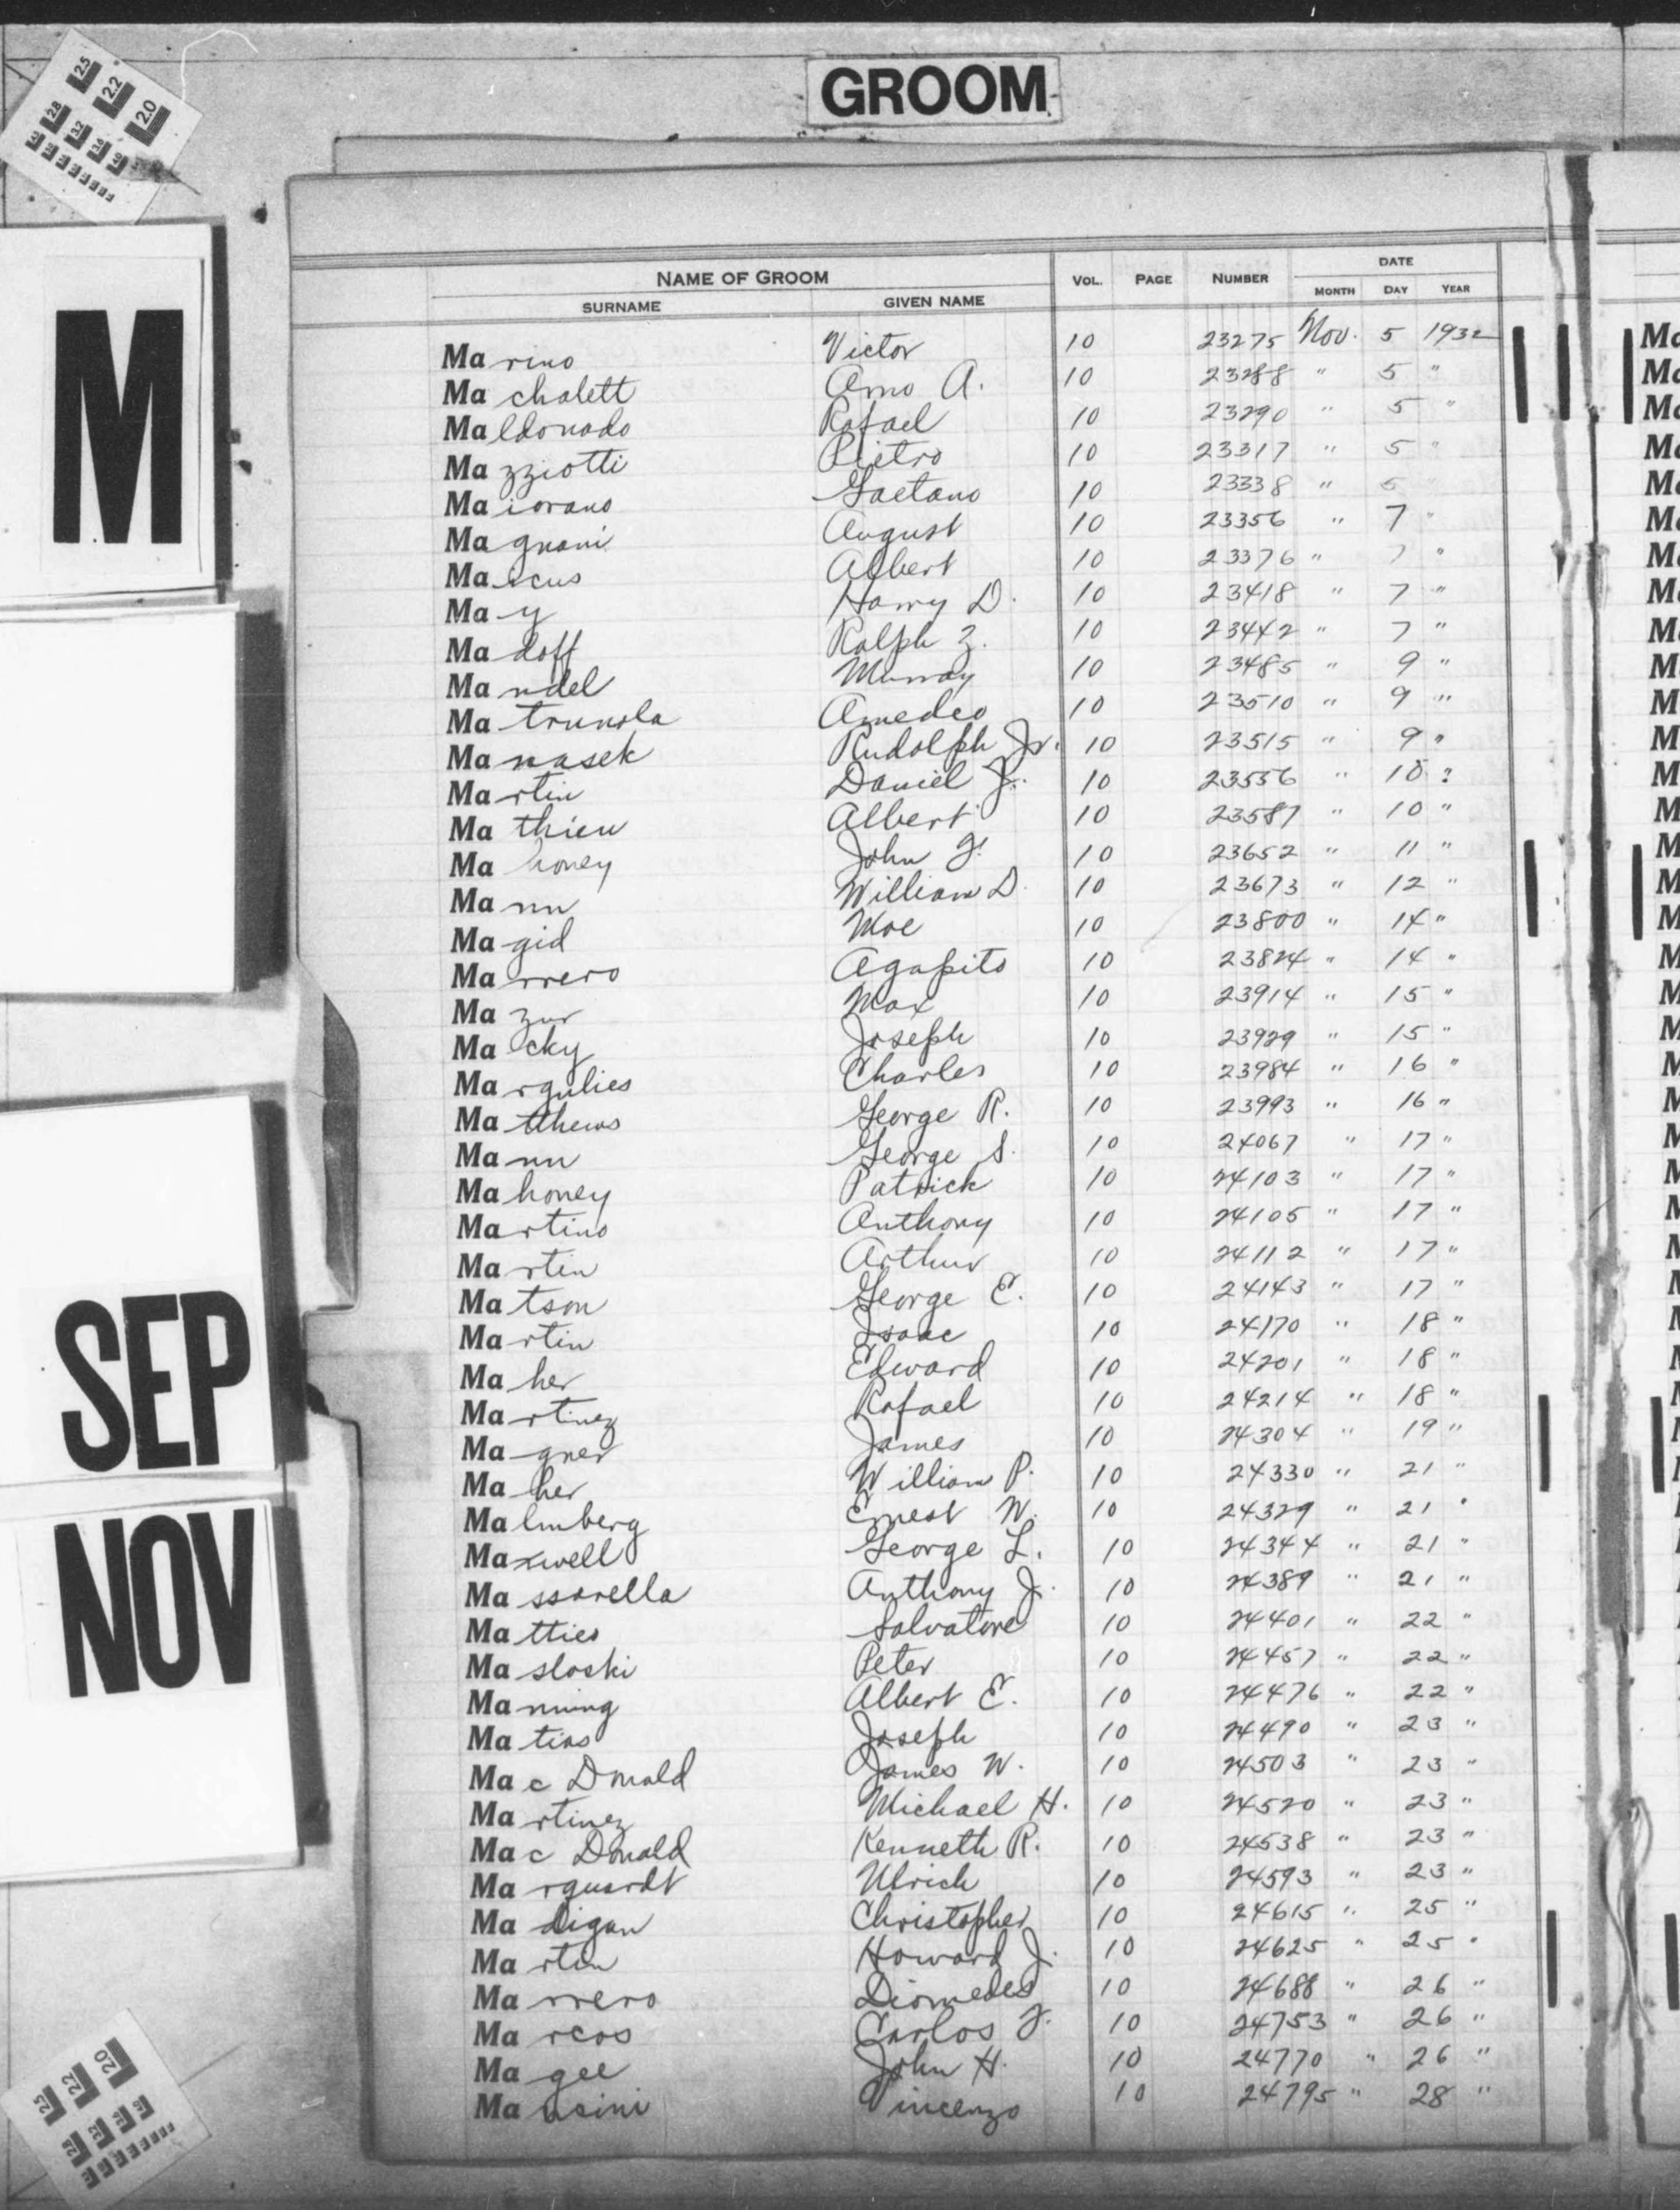 GROOM
M
SEP
NOV
NAME OF GROOM VOL. PAGE NUMBER DATE
SURNAME GIVEN NAME MONTH DAY YEAR
Marino Victor 10 23275 Nov. 5 1932
Machalett Arno A. 10 23288 " 5 "
Maldonado Rafael 10 23290 " 5 "
Mazziotti Pietro 10 23317 " 5 "
Maiorano Gaetano 10 23338 " 5 "
Magnani August 10 23356 " 7 "
Marcus Albert 10 23376 " 7 "
May Harry D. 10 23418 " 7 "
Madoff Ralph Z. 10 23442 " 7 "
Mandel Murray 10 23485 " 9 "
Matrunola Amedeo 10 23510 " 9 "
Manasek Rudolph Jr. 10 23515 " 9 "
Martin Daniel J. 10 23556 " 10 "
Mathieu Albert 10 23587 " 10 "
Mahoney John J. 10 23652 " 11 "
Mann William D. 10 23673 " 12 "
Magid Moe 10 23800 " 14 "
Marrero Agapito 10 23824 " 14 "
Mazur Max 10 23914 " 15 "
Macky Joseph 10 23929 " 15 "
Margulies Charles 10 23984 " 16 "
Matthews George R. 10 23993 " 16 "
Mann George S. 10 24067 " 17 "
Mahoney Patrick 10 24103 " 17 "
Martino Anthony 10 24105 " 17 "
Martin Arthur 10 24112 " 17 "
Matson George E. 10 24143 " 17 "
Martin Isaac 10 24170 " 18 "
Maher Edward 10 24201 " 18 "
Martinez Rafael 10 24214 " 18 "
Magner James 10 24304 " 19 "
Maher William P. 10 24330 " 21 "
Malmberg Ernest W. 10 24329 " 21 "
Maxwell George L. 10 24344 " 21 "
Massarella Anthony J. 10 24389 " 21 "
Matties Salvatore 10 24401 " 22 "
Masloski Peter 10 24457 " 22 "
Manning Albert E. 10 24476 " 22 "
Matias Joseph 10 24490 " 23 "
Mac Donald James W. 10 24503 " 23 "
Martinez Michael H. 10 24520 " 23 "
Mac Donald Kenneth R. 10 24538 " 23 "
Marquardt Ulrich 10 24593 " 23 "
Madigan Christopher 10 24615 " 25 "
Martin Howard J. 10 24625 " 25 "
Marrero Diomedes 10 24688 " 26 "
Marcos Carlos F. 10 24753 " 26 "
Magee John H. 10 24770 " 26 "
Vincenzo 10 24795 " 28 "